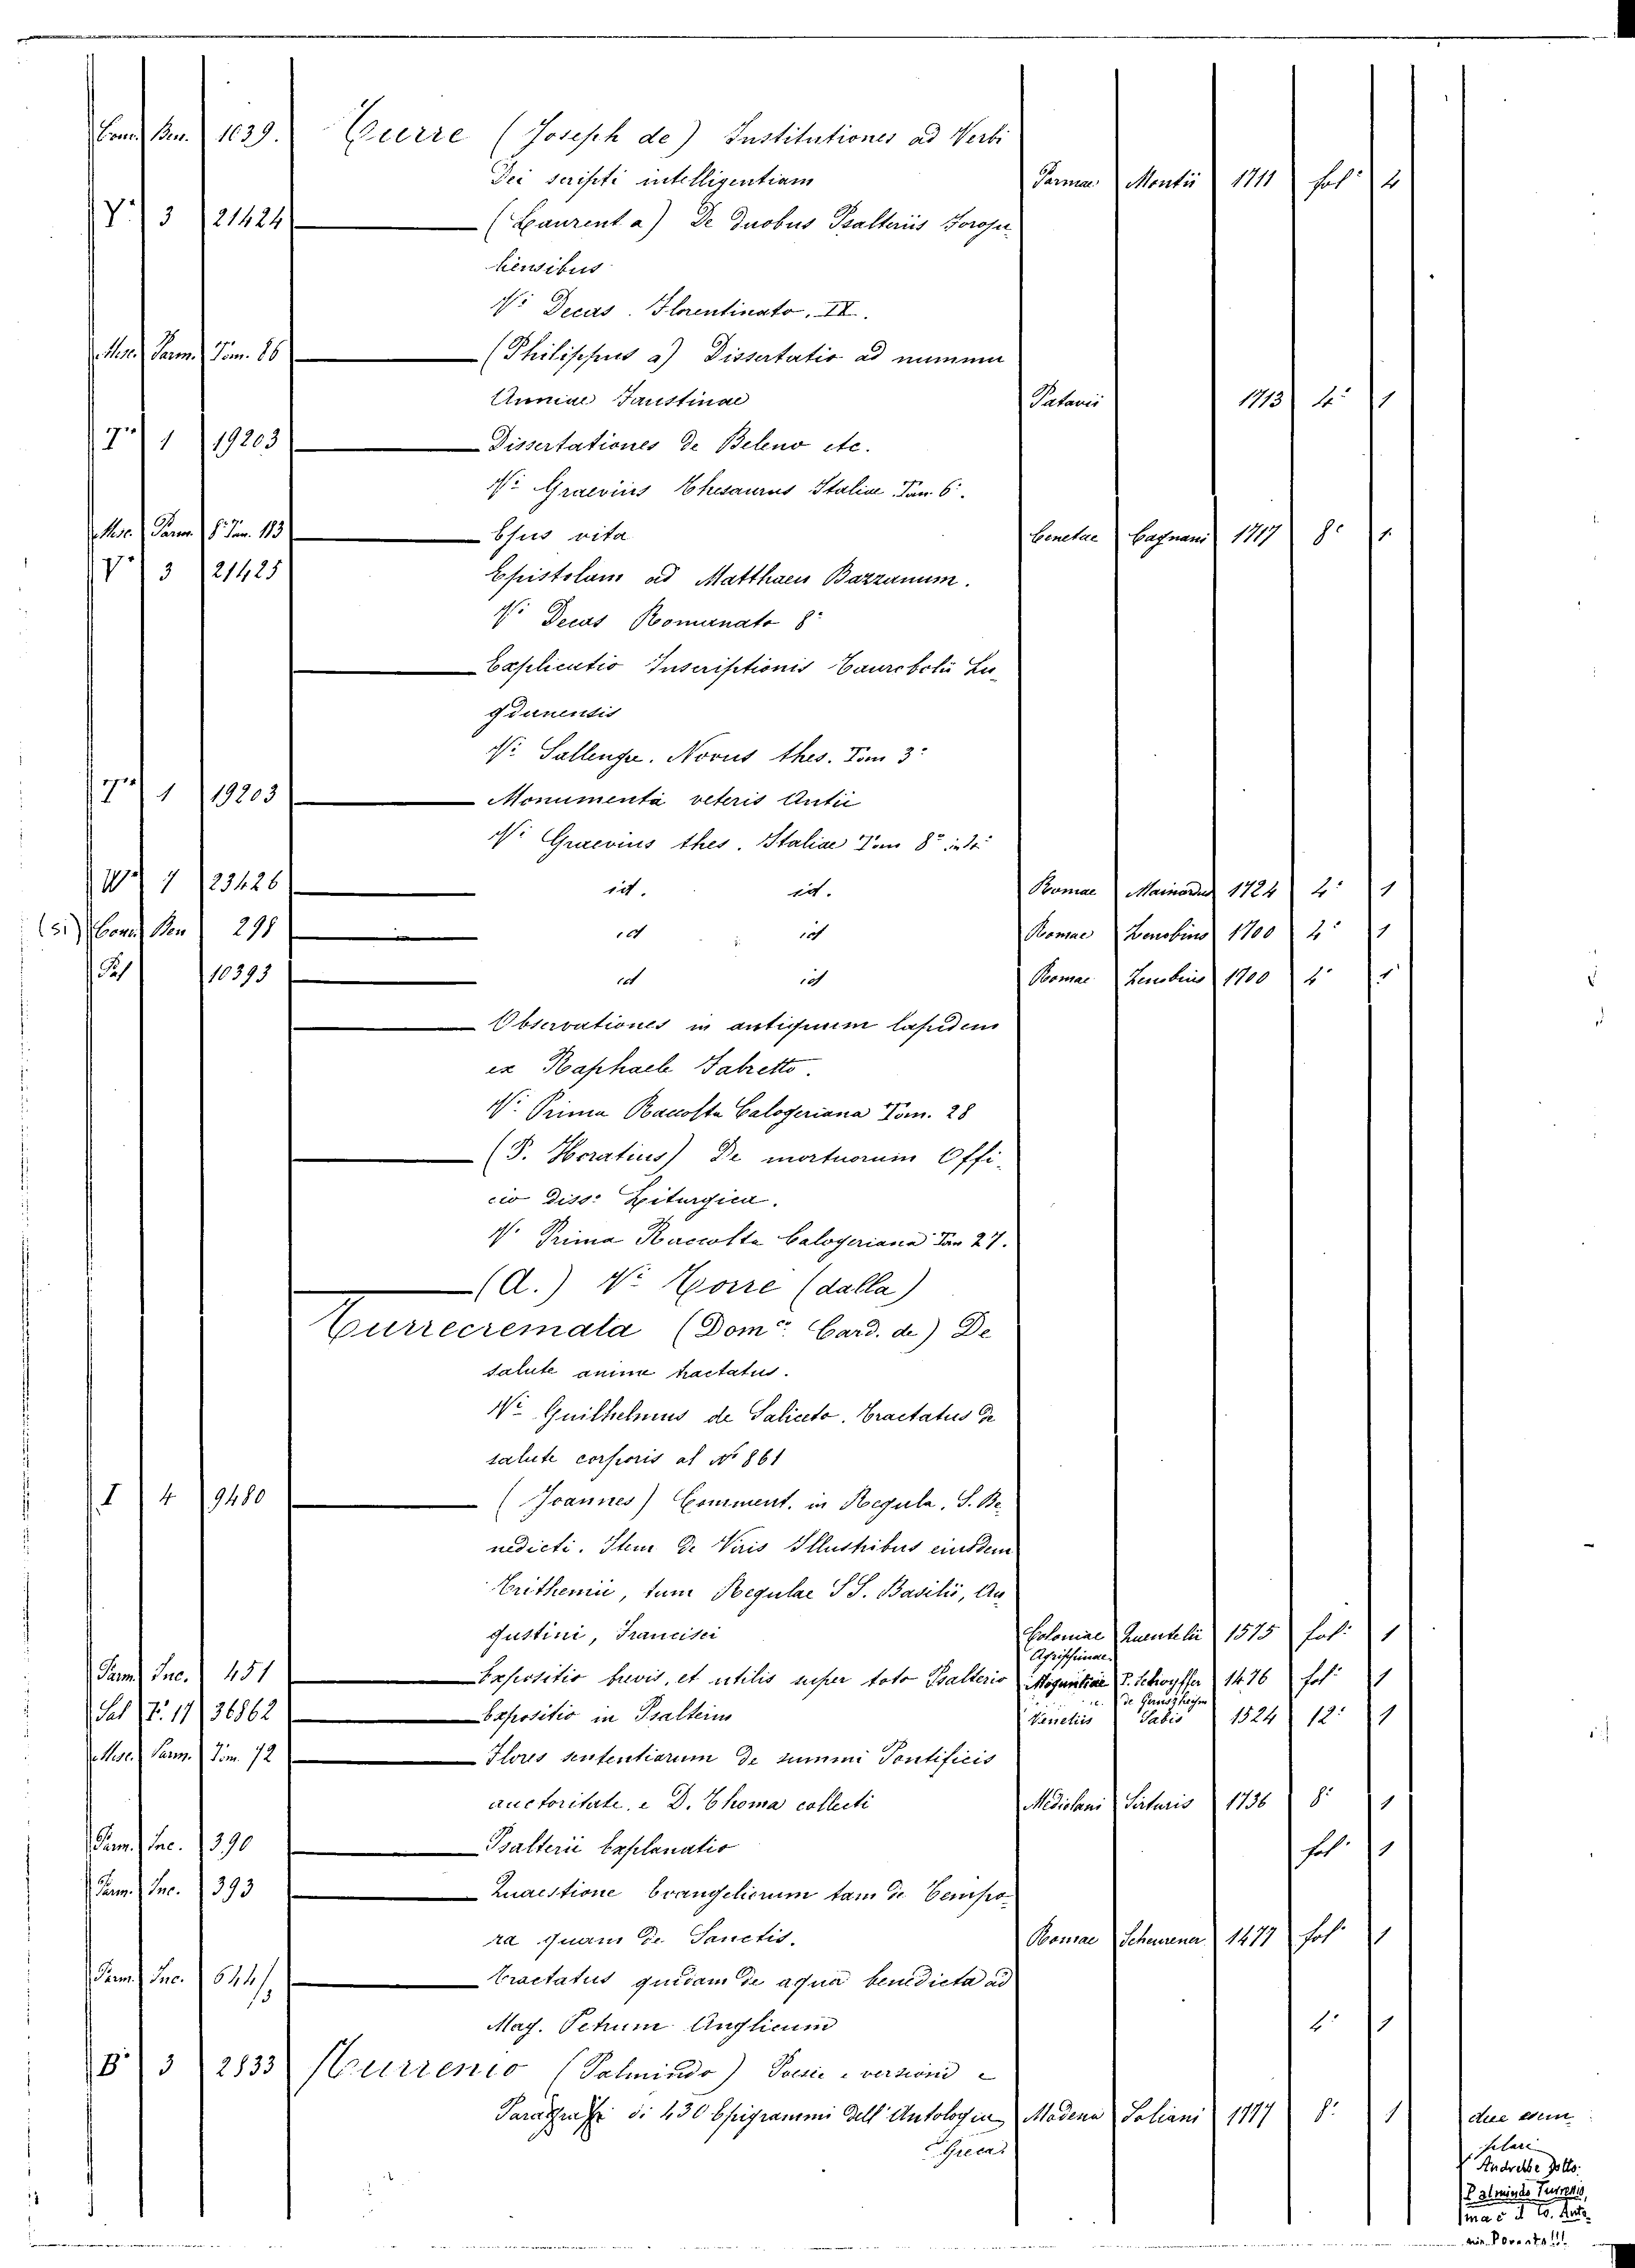 Cond. Ben. 1039. Turre (Joseph de) Institutiones ad Verbi
Dei scripti intelligentiam Parmae Montii 1711 fol: 2
V. 3 21424 (Laurent a) De Duobus Psalteriis Forojuliensibus
V: Decas. Florentinato. IX.
Misc. Parm. Tom. 86 (Philippus a) Dissertatio ad nummum
Anniae Faustinae Patavii 1713 4: 1
1 19203 Dissertationes de Beleno etc.
V: Graevius Thesaurus Italiae Tom. 6.
Misc. Parm. 8: Tom. 113 Ejus vita Venetiae Bagnani 1717 8: 1
V. 3 21425 Epistolam ad Matthaeu Bazzanum.
V: Decas Romanato 8:
Explicatio Inscriptionis Taurobolii Lugdunensis
V: Sallengre. Novus thes. Tom 3:
1 19203 Monumenta veteris Antii
V: Graevius thes. Italiae Tom 8:
W. 7 23426 id. id. Romae Mainardus 1724 4: 1
(si) Cond. Ben 298 id id Romae Zenobius 1700 4: 1
Pal 10393 id id Romae Zenobius 1700 4: 1
Observationes in antiquum lapidem
ex Raphaele Fabretto.
V: Prima Raccolta Calogeriana Tom. 28
(P. Horatius) De mortuorum Officio
diss: Liturgica.
V: Prima Raccolta Calogeriana Tom 27.
(A.) V: Torre (dalla)
Turrecremata (Dom: Card. de) De
salute anime tractatus.
V: Guilhelmus de Saliceto. Tractatus de
salute corporis al N: 861
I 4 9480 (Joannes) Comment. in Regula. S. Benedicti.
Item De Viris Illustribus eiusdem
Trithemii, tum Regulae S S. Basilii, Augustini,
Francisci Coloniae Agrippinae Quentelii 1575 fol: 1
Parm. Inc. 451 Expositio brevis, et utilis super toto Psalterio Moguntiae P. Schoyffer de Gernszheym 1476 fol: 1
Sal F. 17 36862 Expositio in Psalterium Venetiis Sabio 1524 12: 1
Misc. Parm. Tom. 72 Flores sententiarum de summi Pontificis
auctoritate, e D. Thoma collecti Mediolani Sirturis 1736 8: 1
Parm. Inc. 390 Psalterii Explanatio fol: 1
Parm. Inc. 393 Quaestione Evangeliorum tam de Tempora
quam De Sanctis. Romae Scheurener 1477 fol: 1
Parm. Inc. 644/ Tractatus quidam de aqua benedicta ad
Mag. Petrum Anglicum 4: 1
B. 3 2833 Turrenio (Palmindo) Poesie e versioni e
Parafrasi di 430 Epigrammi dell' Antologia Modena Soliani 1777 8: 1 due esem
Greca plari
Andrebbe sotto:
Palmindo Turrenio,
ma è il